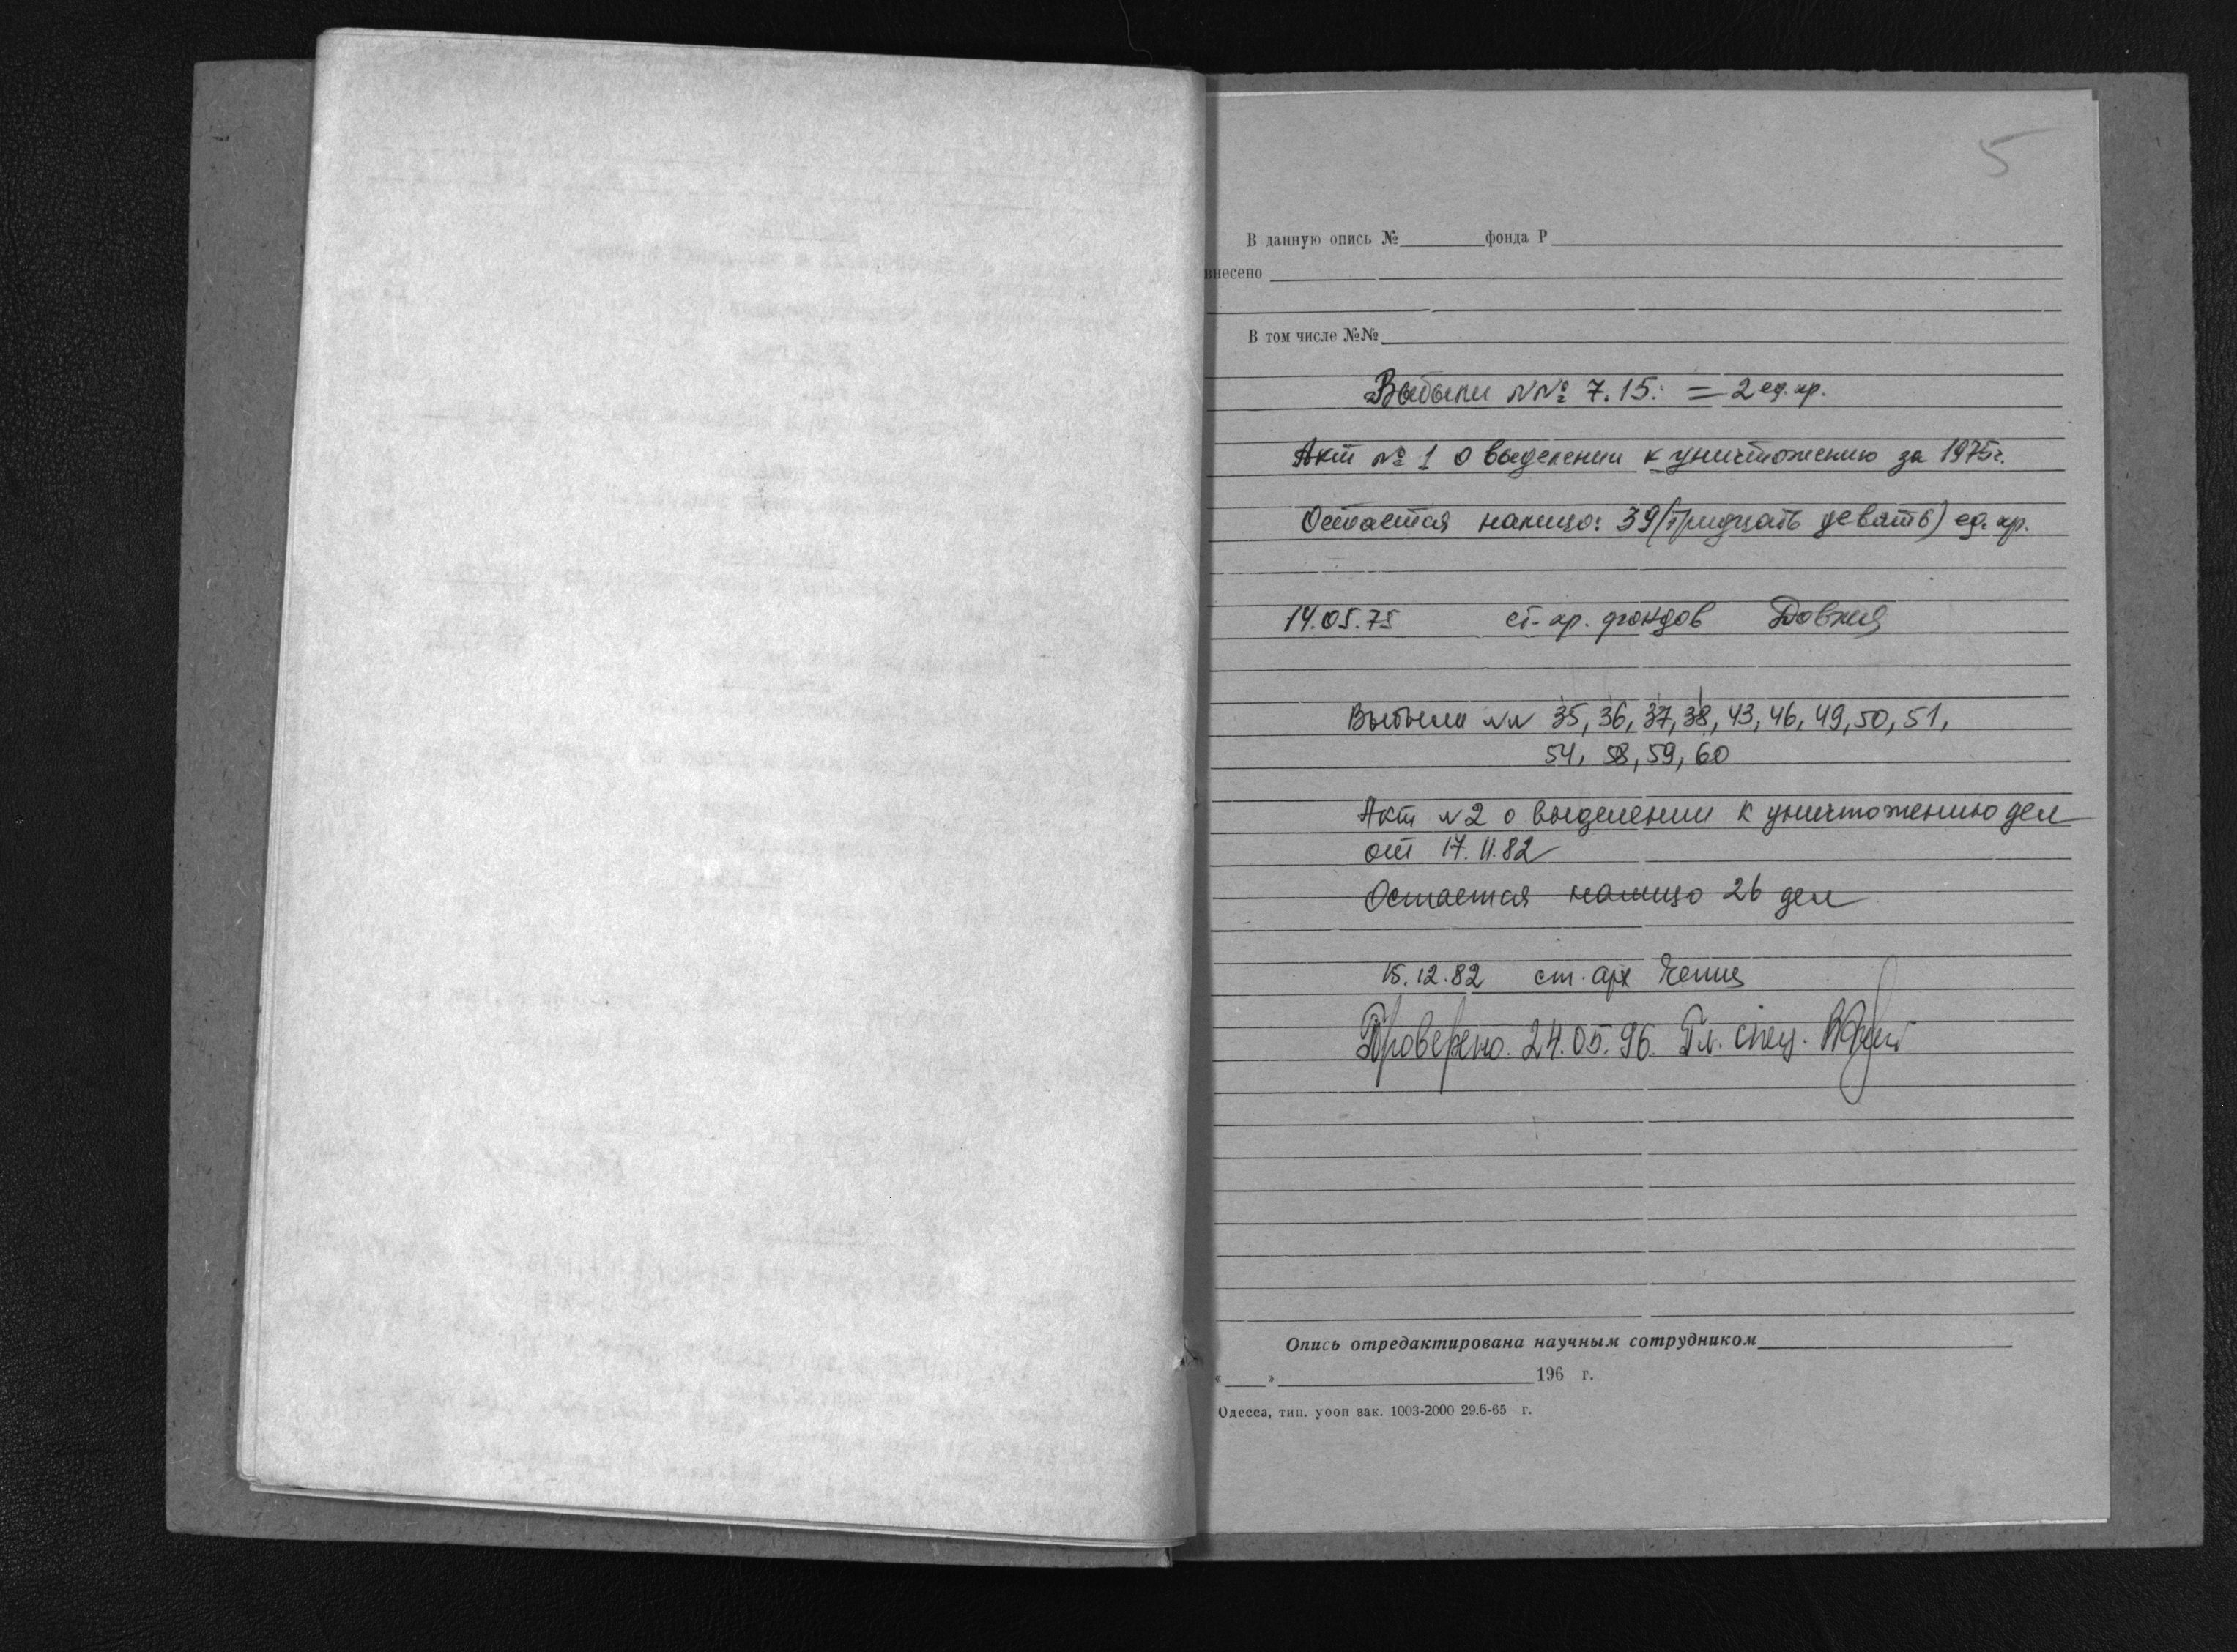 5
В данную опись № фонда Р
внесено
В том числе №№
Выбыли №№ 7.15. = 2 ед. хр.
Акт № 1 о выделении к уничтожению за 1975г.
Остается налицо: 39 (тридцать девять) ед. хр.
14.05.75 ст. хр. фондов
Выбыли №№ 35, 36, 37, 38, 43, 46, 49, 50, 51,
54, 58, 59, 60
Акт №2 о выделении к уничтожению дел
от 17.11.82
Остается налицо 26 дел
15.12.82 ст. арх
Проверено. 24.05.96. Гл. спец.
Опись отредактирована научным сотрудником
« » 196 г.
Одесса, тип. уооп зак. 1003-2000 29.6-65 г.